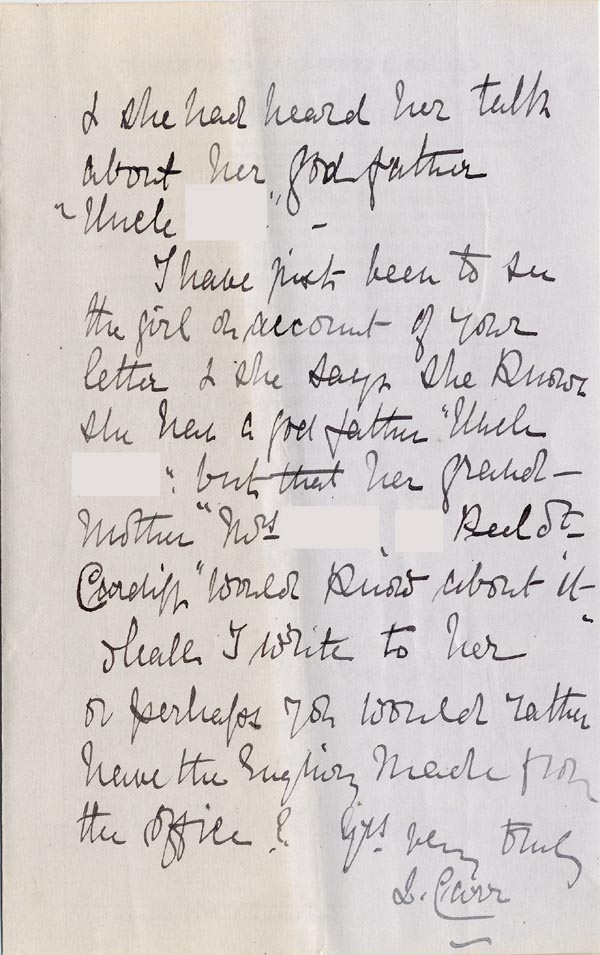 & she had heard her talk
about her god father
"Uncle " -
I have just been to see
the girl on account of your
letter & she says she knows
she has a god father "Uncle
", but that her grand-
mother "Mrs , Peel St
Cardiff" would know about it
Shall I write to her
or perhaps you would rather
have the enquiry made from
the office? Yrs very truly
L. Carr